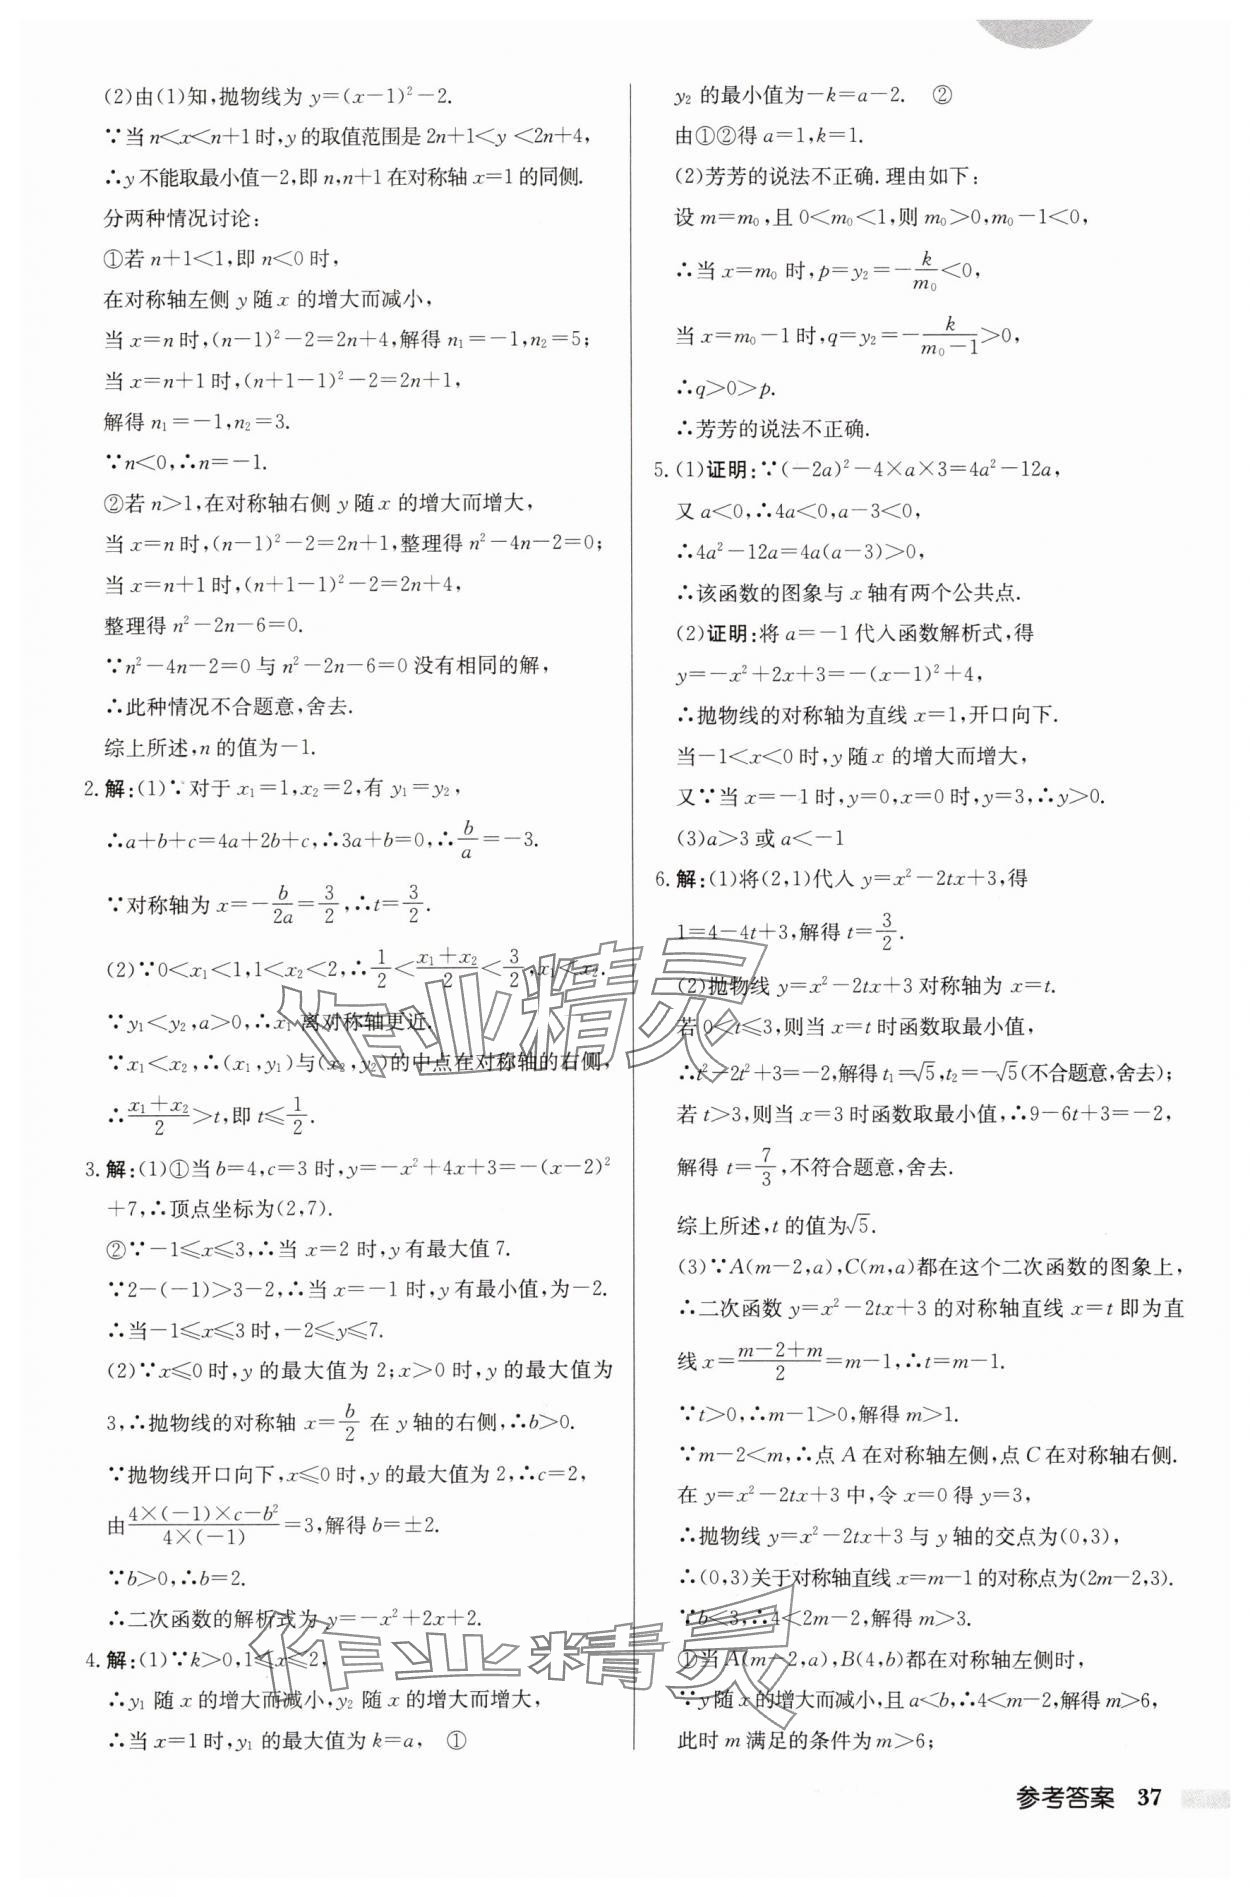 (2)由(1)知,抛物线为 y=(x−1)²−2.
∵当 n<x<n+1 时,y 的取值范围是 2n+1<y<2n+4,
∴y 不能取最小值−2,即 n,n+1 在对称轴 x=1 的同侧.
分两种情况讨论:
①若 n+1<1,即 n<0 时,
在对称轴左侧 y 随 x 的增大而减小,
当 x=n 时,(n−1)²−2=2n+4,解得 n₁=−1,n₂=5;
当 x=n+1 时,(n+1−1)²−2=2n+1,
解得 n₁=−1,n₂=3.
∵n<0,∴n=−1.
②若 n>1,在对称轴右侧 y 随 x 的增大而增大,
当 x=n 时,(n−1)²−2=2n+1,整理得 n²−4n−2=0;
当 x=n+1 时,(n+1−1)²−2=2n+4,
整理得 n²−2n−6=0.
∵n²−4n−2=0 与 n²−2n−6=0 没有相同的解,
∴此种情况不合题意,舍去.
综上所述,n 的值为−1.
2.解:(1)∵对于 x₁=1,x₂=2,有 y₁=y₂,
∴a+b+c=4a+2b+c,∴3a+b=0,∴b/a=−3.
∵对称轴为 x=−b/2a=3/2,∴t=3/2.
(2)∵0<x₁<1,1<x₂<2,∴1/2<(x₁+x₂)/2<3/2,x₁<x₂.
∵y₁<y₂,a>0,∴x₁ 离对称轴更近.
∵x₁<x₂,∴(x₁,y₁)与(x₂,y₂)的中点在对称轴的右侧,
∴(x₁+x₂)/2>t,即 t≤1/2.
3.解:(1)①当 b=4,c=3 时,y=−x²+4x+3=−(x−2)²
+7,∴顶点坐标为(2,7).
②∵−1≤x≤3,∴当 x=2 时,y 有最大值 7.
∵2−(−1)>3−2,∴当 x=−1 时,y 有最小值,为−2.
∴当−1≤x≤3 时,−2≤y≤7.
(2)∵x≤0 时,y 的最大值为 2;x>0 时,y 的最大值为
3,∴抛物线的对称轴 x=b/2 在 y 轴的右侧,∴b>0.
∵抛物线开口向下,x≤0 时,y 的最大值为 2,∴c=2,
由(4×(−1)×c−b²)/(4×(−1))=3,解得 b=±2.
∵b>0,∴b=2.
∴二次函数的解析式为 y=−x²+2x+2.
4.解:(1)∵k>0,1≤x≤2,
∴y₁ 随 x 的增大而减小,y₂ 随 x 的增大而增大,
∴当 x=1 时,y₁ 的最大值为 k=a, ①
y₂ 的最小值为−k=a−2. ②
由①②得 a=1,k=1.
(2)芳芳的说法不正确.理由如下:
设 m=m₀,且 0<m₀<1,则 m₀>0,m₀−1<0,
∴当 x=m₀ 时,p=y₂=−k/m₀<0,
当 x=m₀−1 时,q=y₂=−k/(m₀−1)>0,
∴q>0>p.
∴芳芳的说法不正确.
5.(1)证明:∵(−2a)²−4×a×3=4a²−12a,
又 a<0,∴4a<0,a−3<0,
∴4a²−12a=4a(a−3)>0,
∴该函数的图象与 x 轴有两个公共点.
(2)证明:将 a=−1 代入函数解析式,得
y=−x²+2x+3=−(x−1)²+4,
∴抛物线的对称轴为直线 x=1,开口向下.
当−1<x<0 时,y 随 x 的增大而增大,
又∵当 x=−1 时,y=0,x=0 时,y=3,∴y>0.
(3)a>3 或 a<−1
6.解:(1)将(2,1)代入 y=x²−2tx+3,得
1=4−4t+3,解得 t=3/2.
(2)抛物线 y=x²−2tx+3 对称轴为 x=t.
若 0<t≤3,则当 x=t 时函数取最小值,
∴t²−2t²+3=−2,解得 t₁=√5,t₂=−√5(不合题意,舍去);
若 t>3,则当 x=3 时函数取最小值,∴9−6t+3=−2,
解得 t=7/3,不符合题意,舍去.
综上所述,t 的值为√5.
(3)∵A(m−2,a),C(m,a)都在这个二次函数的图象上,
∴二次函数 y=x²−2tx+3 的对称轴直线 x=t 即为直
线 x=(m−2+m)/2=m−1,∴t=m−1.
∵t>0,∴m−1>0,解得 m>1.
∵m−2<m,∴点 A 在对称轴左侧,点 C 在对称轴右侧.
在 y=x²−2tx+3 中,令 x=0 得 y=3,
∴抛物线 y=x²−2tx+3 与 y 轴的交点为(0,3),
∴(0,3)关于对称轴直线 x=m−1 的对称点为(2m−2,3).
∵b<3,∴4<2m−2,解得 m>3.
①当 A(m−2,a),B(4,b)都在对称轴左侧时,
∵y 随 x 的增大而减小,且 a<b,∴4<m−2,解得 m>6,
此时 m 满足的条件为 m>6;
作业精灵
作业精灵
参考答案 37